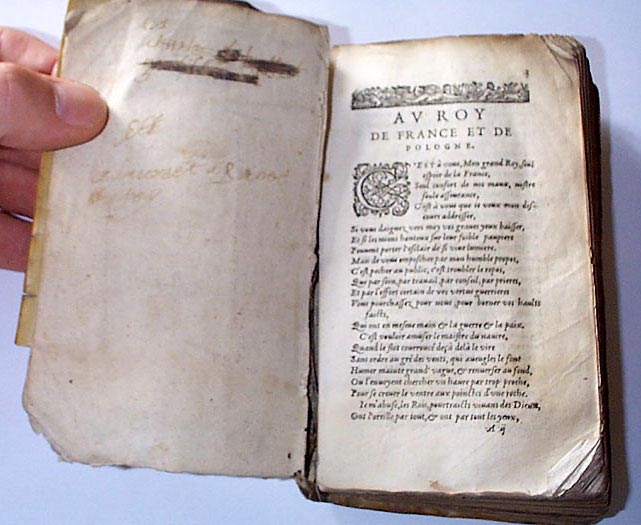 3
AV ROY
DE FRANCE ET DE
POLOGNE.
C'EST à vous, Mon grand Roy, seul
espoir de la France,
Seul confort de nos maux, nostre
seule asseurance,
C'est à vous que ie veux mon dis-
cours addresser,
Si vous daignez vers moy vos graues yeux baisser,
Et si les miens honteux sur leur foible paupiere
Peuuent porter l'esclair de si viue lumiere.
Mais de vous empescher par mon humble propos,
C'est pecher au public, c'est troubler le repos,
Que par soin, par trauail, par conseil, par prieres,
Et par l'effort certain de vos vertus guerrieres
Vous pourchassez pour nous, pour borner vos haults
faicts,
Qui ont en mesme main & la guerre & la paix.
C'est vouloir amuser le maistre du nauire,
Quand le flot courroucé deçà delà le vire
Sans ordre au gré des vents, qui aueugles le font
Humer mainte grand' vague, & renuerser au fond,
Ou l'enuoyent chercher vn haure par trop proche,
Pour se creuer le ventre aux poinctes d'vne roche.
Ie m'abuse, les Rois, pourtraicts viuans des Dieux,
Ont l'oreille par tout, & ont par tout les yeux,
A ij